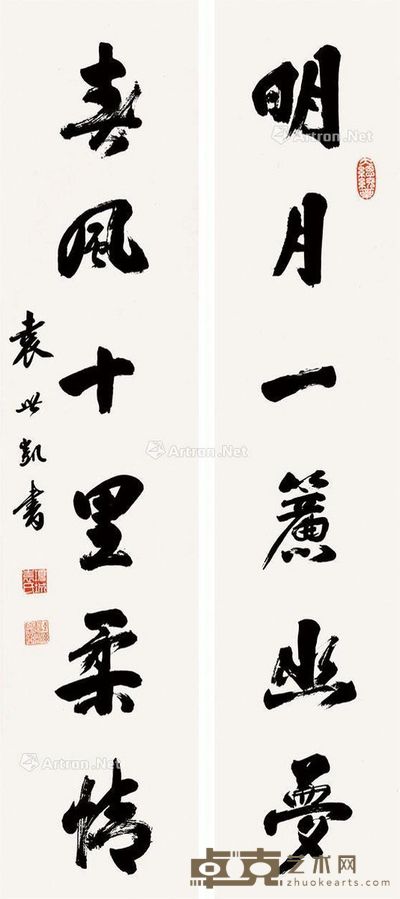 明月一簾幽夢
春風十里柔情
袁世凱書
Artron.Net
Artron.Net
Artron.Net
Artron.Net
卓克艺术网
zhuokearts.com